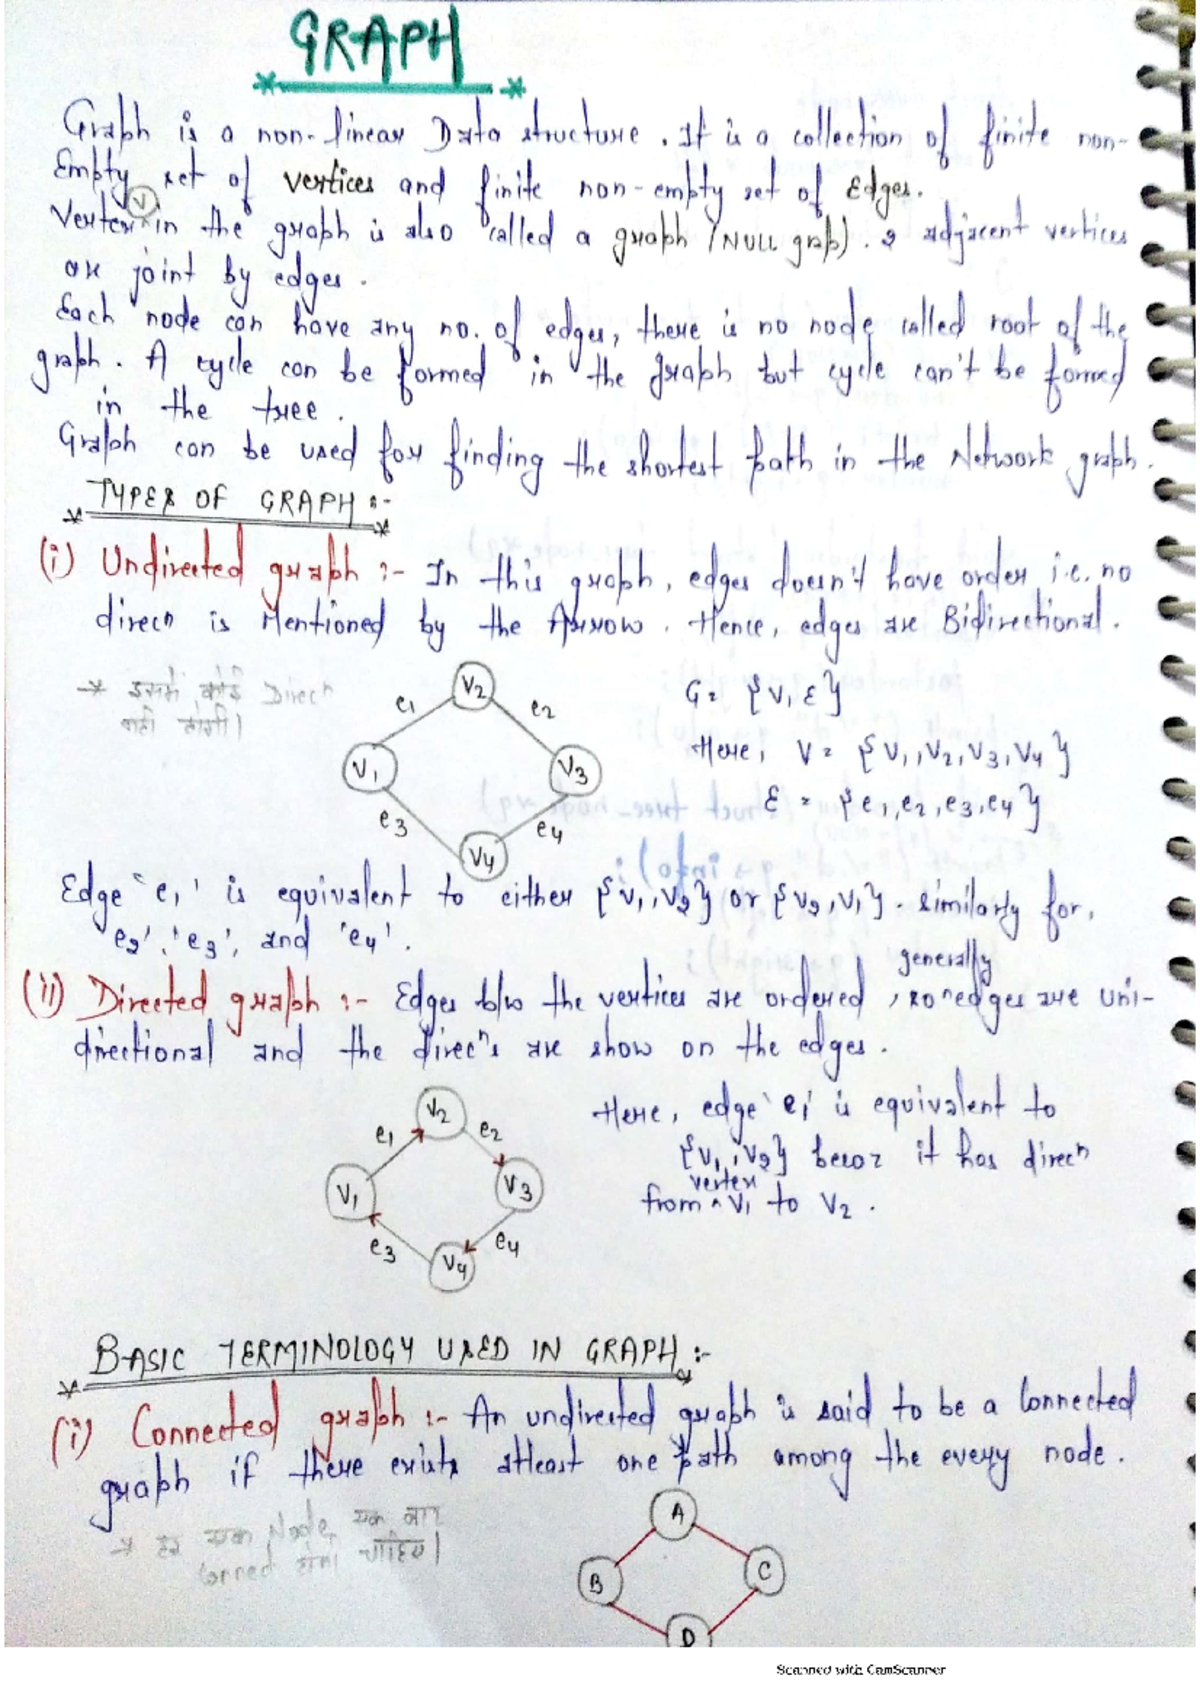 GRAPH
Graph is a non-linear Data structure. It is a collection of finite non-
Empty set of vertices and finite non-empty set of Edges.
V
Vertex in the graph is also called a graph (NULL grap). 2 adjacent vertices
are joint by edges.
Each node can have any no. of edges, there is no node called root of the
graph. A cycle can be formed in the graph but cycle can't be formed
in the tree.
Graph can be used for finding the shortest path in the Network graph.
* TYPES OF GRAPH :- *
(i) Undirected graph :- In this graph, edges doesn't have order i.e. no
direcn is Mentioned by the Arrow. Hence, edges are Bidirectional.
* इसमें कोई Direcn
नहीं होगी।
V2
e1
e2
V1
V3
e3
e4
V4
G = {V, E}
Here, V = {V1, V2, V3, V4}
E = {e1, e2, e3, e4}
Edge 'e1' is equivalent to either {V1, V2} or {V2, V1}. similarly for,
e2', 'e3', and 'e4'.
generally
(ii) Directed graph :- Edges b/w the vertices are ordered, so ^edges are uni-
directional and the direcn's are show on the edges.
V2
e1
e2
V1
V3
e3
e4
V4
Here, edge 'e1' is equivalent to
{V1, V2} becoz it has direcn
vertex
from ^ V1 to V2.
* BASIC TERMINOLOGY USED IN GRAPH :- *
(i) Connected graph :- An undirected graph is said to be a Connected
graph if there exists atleast one path among the every node.
* हर एक Node एक बार
conned होना चाहिये।
A
B
C
D
Scanned with CamScanner